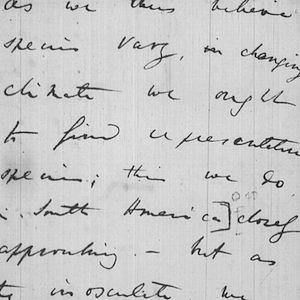 as we thus believe
species vary, in changing
climate we ought
to find representative
species; this we do
in South America] closely
approaching – but as
they inosculate, we